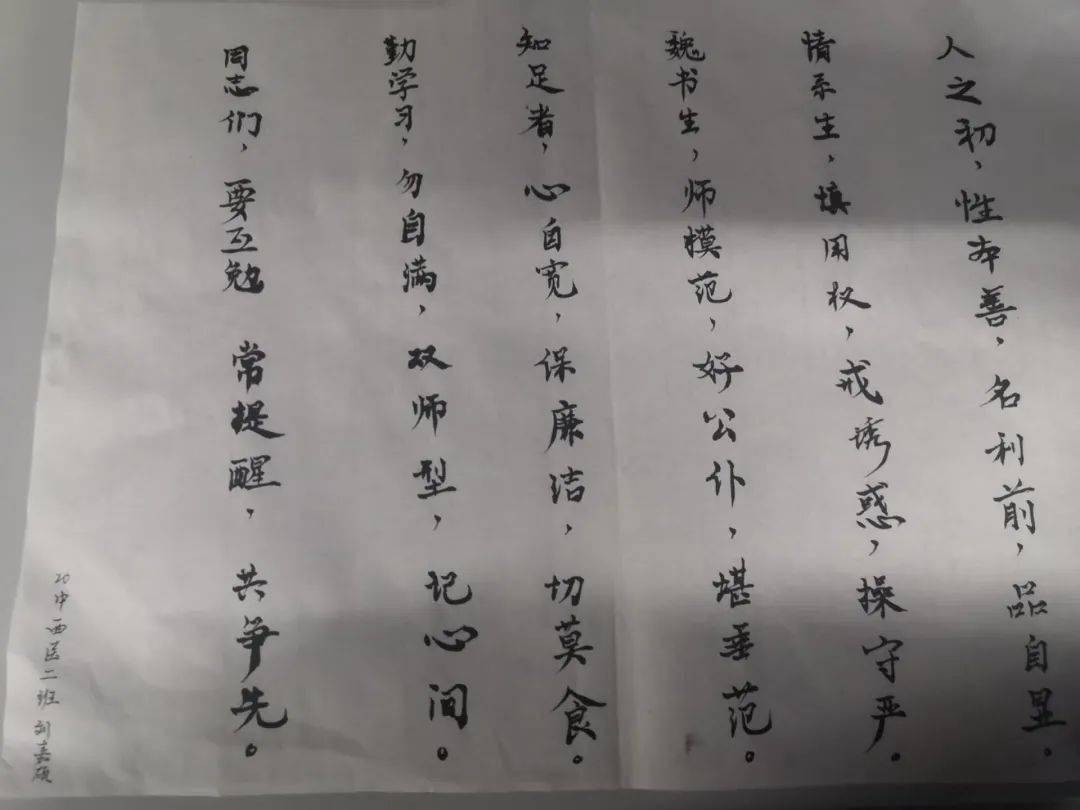 人之初，性本善，名利前，品自显。
情系生，慎用权，戒诱惑，操守严。
魏书生，师模范，好公仆，堪垂范。
知足者，心自宽，保廉洁，切莫食。
勤学习，勿自满，双师型，记心间。
同志们，要互勉 常提醒，共争先。
20中西医二班 刘嘉硕